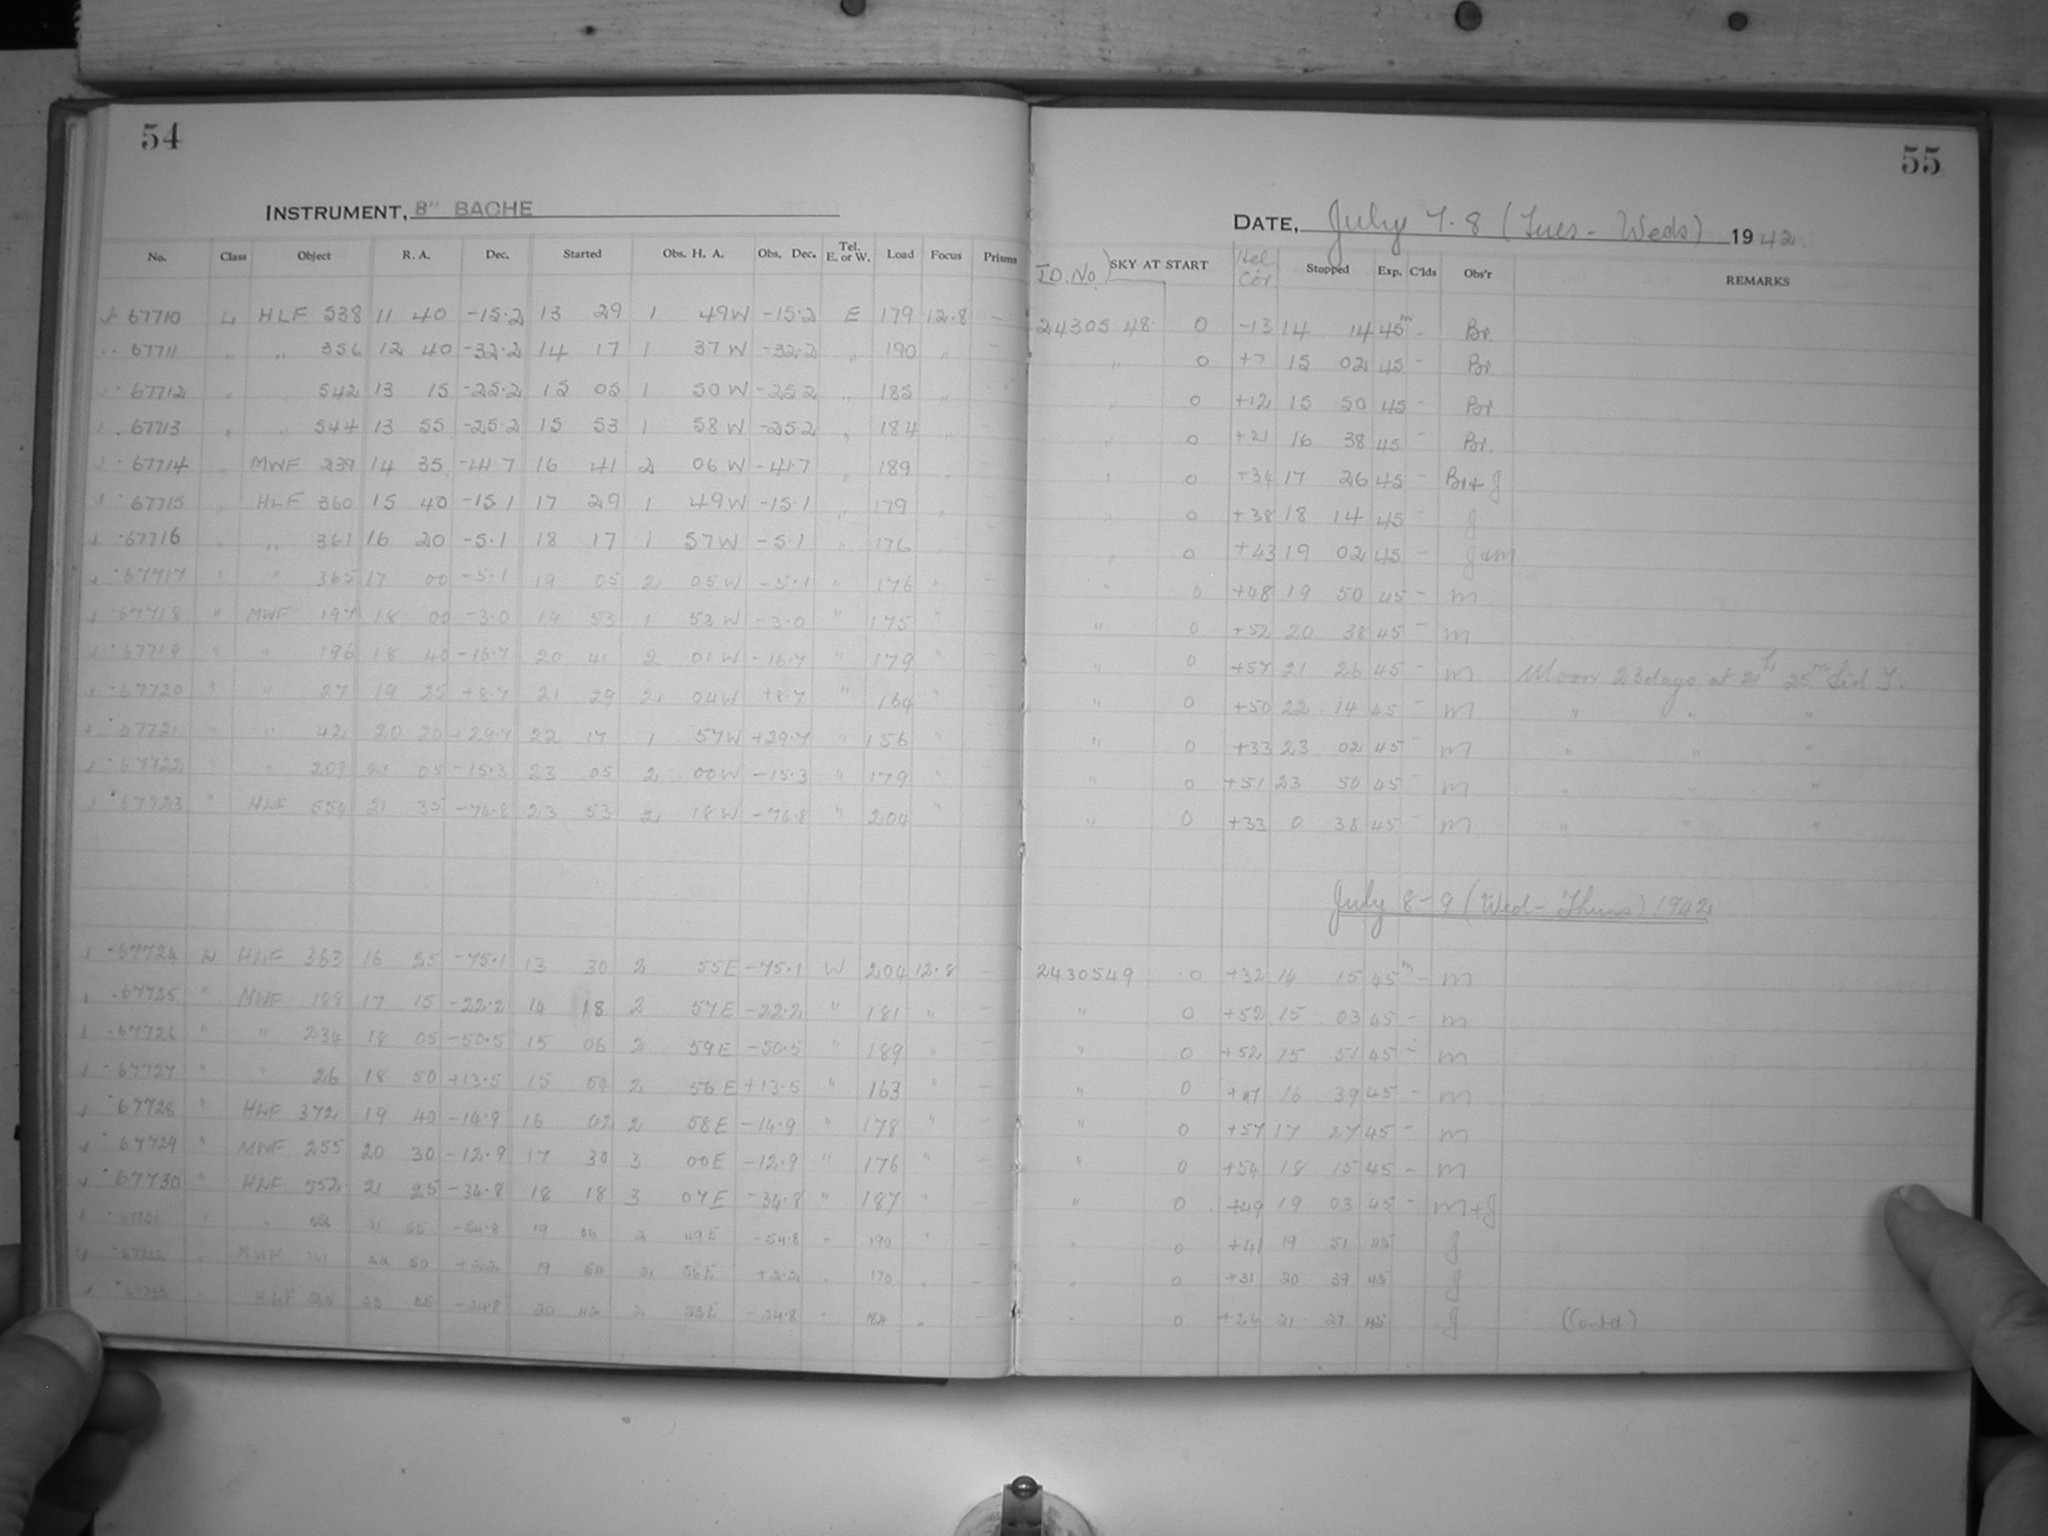 54
INSTRUMENT, 8" BACHE
No. Class Object R. A. Dec. Started Obs. H. A. Obs. Dec. Tel. E. or W. Load Focus Prisms
67710 L HLF 538 11 40 -15.2 13 29 1 49W -15.2 E 179 12.8 -
67711 " " 356 12 40 -32.2 14 17 1 37W -32.2 " 190 "
67712 " " 542 13 15 -25.2 15 05 1 50W -25.2 " 185 "
67713 " " 544 13 55 -25.2 15 53 1 58W -25.2 " 184 "
67714 " MWF 239 14 35 -41.7 16 41 2 06W -41.7 " 189 "
67715 " HLF 360 15 40 -15.1 17 29 1 49W -15.1 " 179 "
67716 " " 361 16 20 -5.1 18 17 1 57W -5.1 " 176 "
67717 " " 365 17 00 -5.1 19 05 2 05W -5.1 " 176 " -
67718 " MWF 197 18 00 -3.0 19 53 1 53W -3.0 " 175 " -
67719 " " 196 18 40 -16.7 20 41 2 01W -16.7 " 179 " -
67720 " " 27 19 25 +8.7 21 29 2 04W +8.7 " 164 "
67721 " " 42 20 20 +29.7 22 17 1 57W +29.7 " 156 "
67722 " " 209 21 05 -15.3 23 05 2 00W -15.3 " 179 "
67723 " HLF 554 21 35 -76.8 23 53 2 18W -76.8 " 204 "
67724 L HLF 363 16 25 -75.1 13 30 2 55E -75.1 W 204 12.8 -
67725 " MWF 188 17 15 -22.2 14 18 2 57E -22.2 " 181 " -
67726 " " 234 18 05 -50.5 15 06 2 59E -50.5 " 189 " -
67727 " " 26 18 50 +13.5 15 54 2 56E +13.5 " 163 " -
67728 " HLF 372 19 40 -14.9 16 42 2 58E -14.9 " 178 " -
67729 " MWF 255 20 30 -12.9 17 30 3 00E -12.9 " 176 " -
67730 " HLF 552 21 25 -34.8 18 18 3 07E -34.8 " 187 " -
67731 " " 21 55 -54.8 19 06 2 49E -54.8 " 190 " -
67732 " MWF 22 50 +2.2 19 54 2 56E +2.2 " 170 " -
67733 " HLF 23 35 -24.8 20 42 2 53E -24.8 " 184 " -
55
DATE, July 7.8 (Tues - Weds) 1942.
J.D. No. SKY AT START Hel Cor Stopped Exp. C'lds Obs'r REMARKS
2430548 0 -13 14 14 45m - Br.
" 0 +7 15 02 45 - Br
" 0 +12 15 50 45 - Br
" 0 +21 16 38 45 - Br.
" 0 +34 17 26 45 - Br+J
" 0 +38 18 14 45 - J
" 0 +43 19 02 45 - J&m
" 0 +48 19 50 45 - m
" 0 +52 20 38 45 - m
" 0 +57 21 26 45 - m Moon 23days at 21h 25m Sid T.
" 0 +50 22 14 45 - m " " "
" 0 +33 23 02 45 - m " " "
" 0 +51 23 50 45 - m " " "
" 0 +33 0 38 45 - m " " "
July 8-9 (Wed - Thurs) 1942
2430549 0 +32 14 15 45m - m
" 0 +52 15 03 45 - m
" 0 +52 15 51 45 - m
" 0 16 39 45 - m
" 0 +57 17 27 45 - m
" 0 +54 18 15 45 - m
" 0 +49 19 03 45 - m+J
" 0 +41 19 51 45 J
" 0 +31 20 39 45 J
" 0 +24 21 27 45 J (Contd)